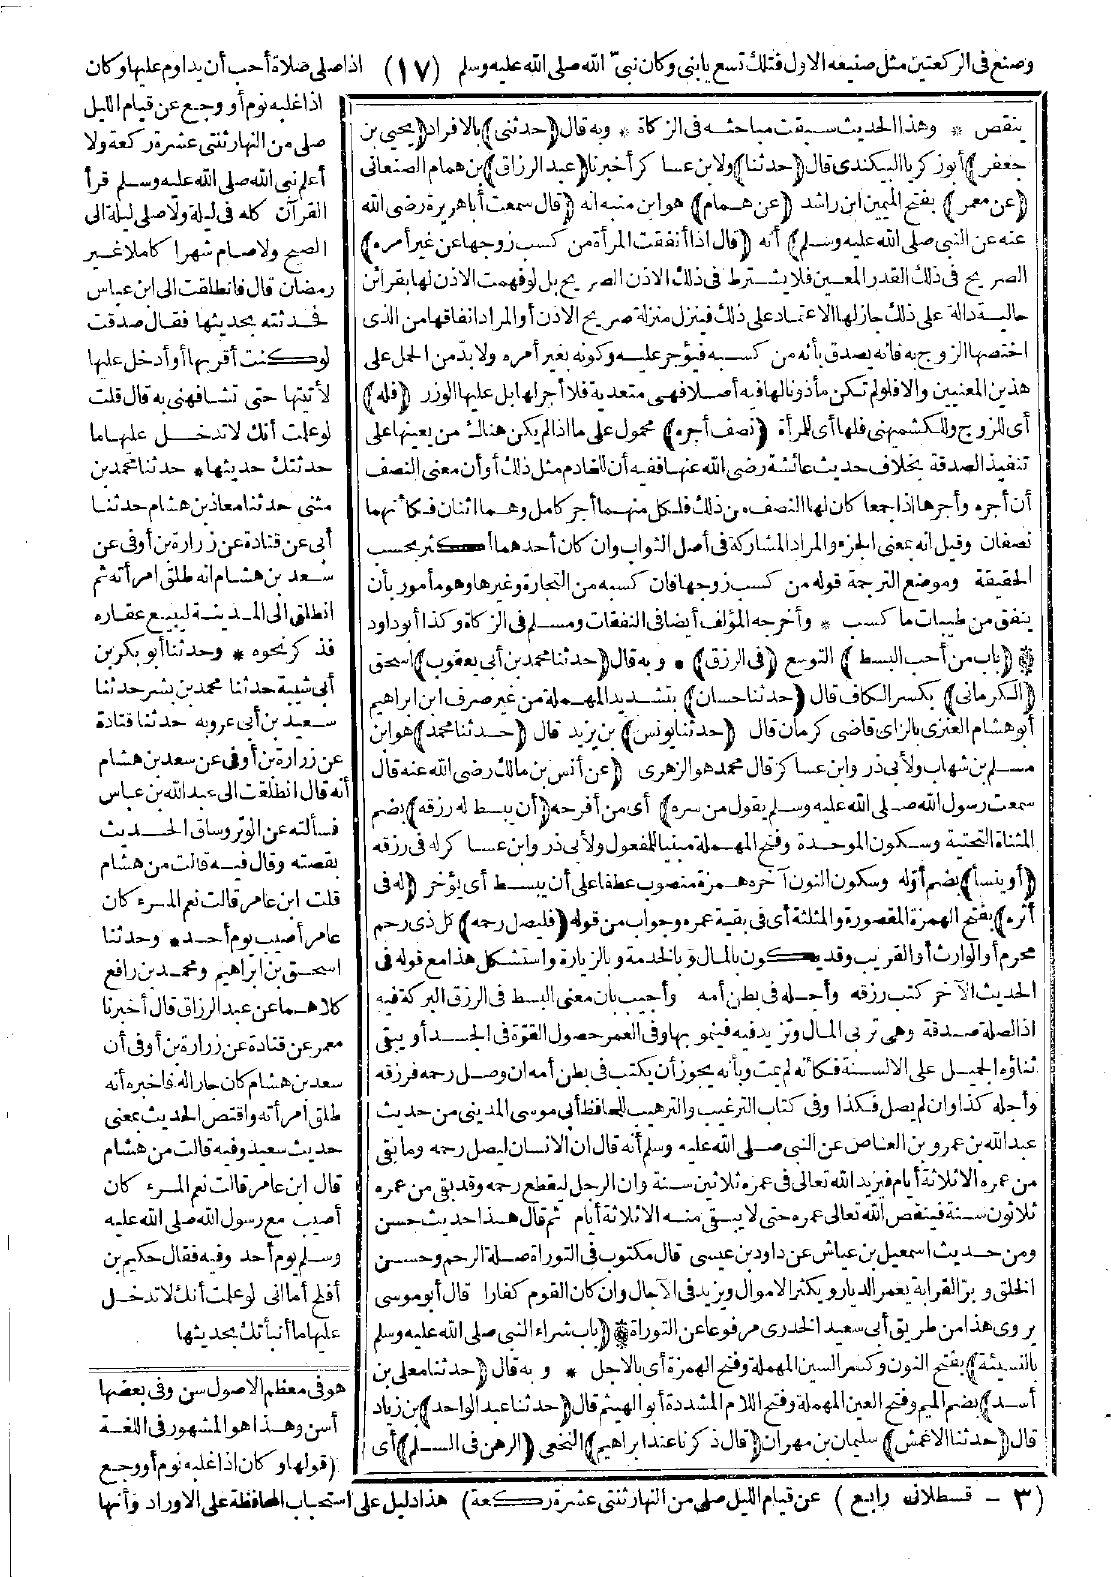 وصنع فى الركعتين مثل صنيعه الاول فتلك تسع يابنى وكان نبىّ الله صلى الله عليه وسلم (١٧) اذا صلى صلاة أحب أن يداوم عليها وكان
ينقص * وهذا الحديث سبقت مباحثه فى الزكاة * وبه قال (حدثنى) بالافراد (يحيى بن
جعفر) أبو زكريا البيكندى قال (حدثنا) ولابن عساكر أخبرنا (عبد الرزاق) بن همام الصنعانى
(عن معمر) بفتح الميمين ابن راشد (عن همام) هو ابن منبه انه (قال سمعت أباهريرة رضى الله
عنه عن النبى صلى الله عليه وسلم) أنه (قال اذا أنفقت المرأة من كسب زوجها عن غير أمره)
الصريح فى ذلك القدر المعين فلا يشترط فى ذلك الاذن الصريح بل لوفهمت الاذن لها بقرائن
حالية دالة على ذلك جاز لها الاعتماد على ذلك فينزل منزلة صريح الاذن أوالمراد انفاقها من الذى
اختصها الزوج به فانه يصدق بأنه من كسبه فيؤجر عليه وكونه بغير أمره ولابدّ من الحمل على
هذين المعنيين والا فلولم تكن مأذونالها فيه أصلا فهى متعدية فلا أجرلها بل عليها الوزر (فله)
أى للزوج وللكشميهنى فلها أى للمرأة (نصف أجره) محمول على ما اذا لم يكن هناك من يعينها على
تنفيذ الصدقة بخلاف حديث عائشة رضى الله عنها ففيه أن للخادم مثل ذلك أوأن معنى النصف
أن أجره وأجرها اذا جمعا كان لها النصف من ذلك فلكل منهما أجر كامل وهما اثنان فكأنهما
نصفان وقيل انه بمعنى الجزء والمراد المشاركة فى أصل الثواب وان كان أحدهما أكثر بحسب
الحقيقة وموضع الترجمة قوله من كسب زوجها فان كسبه من التجارة وغيرها وهو مأمور بأن
ينفق من طيبات ما كسب * وأخرجه المؤلف أيضا فى النفقات ومسلم فى الزكاة وكذا أبوداود
* (باب من أحب البسط) التوسع (فى الرزق) * وبه قال (حدثنا محمد بن أبى يعقوب) اسحق
(الكرمانى) بكسر الكاف قال (حدثنا حسان) بتشديد المهملة من غير صرف ابن ابراهيم
أبو هشام العنزى بالزاى قاضى كرمان قال (حدثنا يونس) بن يزيد قال (حدثنا محمد) هو ابن
مسلم بن شهاب ولأبى ذر وابن عساكر قال محمد هو الزهرى (عن أنس بن مالك رضى الله عنه قال
سمعت رسول الله صلى الله عليه وسلم يقول من سره) أى من أفرحه (أن يبسط له رزقه) بضم
المثناة التحتية وسكون الموحدة وفتح المهملة مبنيا للمفعول ولأبى ذر وابن عساكر له فى رزقه
(أو ينسأ) بضم أوّله وسكون النون آخره همزة منصوب عطفا على أن يبسط أى يؤخر (له فى
أثره) بفتح الهمزة المقصورة والمثلثة أى فى بقية عمره وجواب من قوله (فليصل رحمه) كل ذى رحم
محرم أو الوارث أو القريب وقد يكون بالمال وبالخدمة وبالزيارة واستشكل هذا مع قوله فى
الحديث الآخر كتب رزقه وأجله فى بطن أمه وأجيب بان معنى البسط فى الرزق البركة فيه
اذ الصلة صدقة وهى تربى المال وتزيد فيه فينمو بها وفى العمر حصول القوّة فى الجسد أو يبقى
ثناؤه الجميل على الالسنة فكأنه لم يمت وبأنه يجوز أن يكتب فى بطن أمه ان وصل رحمه فرزقه
وأجله كذا وان لم يصل فكذا وفى كتاب الترغيب والترهيب للحافظ أبى موسى المدينى من حديث
عبد الله بن عمرو بن العاص عن النبى صلى الله عليه وسلم أنه قال ان الانسان ليصل رحمه ومابقى
من عمره الا ثلاثة أيام فيزيد الله تعالى فى عمره ثلاثين سنة وان الرجل ليقطع رحمه وقد بقى من عمره
ثلاثون سنة فينقص الله تعالى عمره حتى لا يبقى منه الا ثلاثة أيام ثم قال هذا حديث حسن
ومن حديث اسمعيل بن عياش عن داود بن عيسى قال مكتوب فى التوراة صلة الرحم وحسن
الخلق وبرّ القرابة يعمر الديار ويكثر الاموال ويزيد فى الآجال وان كان القوم كفارا قال أبو موسى
يروى هذا من طريق أبى سعيد الخدرى مرفوعا عن التوراة * (باب شراء النبى صلى الله عليه وسلم
بالنسيئة) بفتح النون وكسر السين المهملة وفتح الهمزة أى بالاجل * وبه قال (حدثنا معلى بن
أسد) بضم الميم وفتح العين المهملة وفتح اللام المشددة أبو الهيثم قال (حدثنا عبد الواحد) بن زياد
قال (حدثنا الاعمش) سليمان بن مهران (قال ذكرنا عند ابراهيم) النخعى (الرهن فى السلم) أى
اذا غلبه نوم أو وجع عن قيام الليل
صلى من النهار ثنتى عشرة ركعة ولا
أعلم نبى الله صلى الله عليه وسلم قرأ
القرآن كله فى ليلة ولا صلى ليلة الى
الصبح ولا صام شهرا كاملا غير
رمضان قال فانطلقت الى ابن عباس
فحدثته بحديثها فقال صدقت
لو كنت أقربها أو أدخل عليها
لأتيتها حتى تشافهنى به قال قلت
لو علمت أنك لا تدخل عليها ما
حدثتك حديثها * حدثنا محمد بن
مثنى حدثنا معاذ بن هشام حدثنا
أبى عن قتادة عن زرارة بن أوفى عن
سعد بن هشام انه طلق امرأته ثم
انطلق الى المدينة ليبيع عقاره
فذكر نحوه * وحدثنا أبو بكر بن
أبى شيبة حدثنا محمد بن بشر حدثنا
سعيد بن أبى عروبه حدثنا قتادة
عن زرارة بن أوفى عن سعد بن هشام
أنه قال انطلقت الى عبد الله بن عباس
فسألته عن الوتر وساق الحديث
بقصته وقال فيه قالت من هشام
قلت ابن عامر قالت نعم المرء كان
عامر أصيب يوم أحد * وحدثنا
اسحق بن ابراهيم ومحمد بن رافع
كلاهما عن عبد الرزاق قال أخبرنا
معمر عن قتادة عن زرارة بن أوفى أن
سعد بن هشام كان جارا له فاخبره أنه
طلق امرأته واقتص الحديث بمعنى
حديث سعيد وفيه قالت من هشام
قال ابن عامر قالت نعم المرء كان
أصيب مع رسول الله صلى الله عليه
وسلم يوم أحد وفيه فقال حكيم بن
أفلح أما انى لو علمت أنك لا تدخل
عليها ما أنبأتك بحديثها
هو فى معظم الاصول سن وفى بعضها
أسن وهذا هو المشهور فى اللغة
(قولها وكان اذا غلبه نوم أو وجع
(٣ - قسطلانى رابع) عن قيام الليل صلى من النهار ثنتى عشرة ركعة) هذا دليل على استحباب المحافظة على الاوراد وأنها